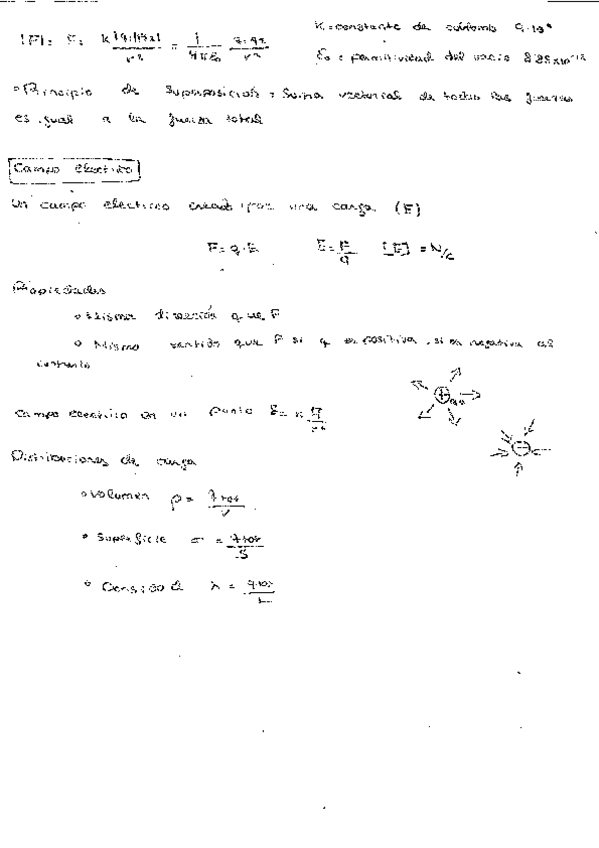 K = constante de coulomb 9·10⁹
|F| = F = K |q1||q2| / r² = 1 / 4πε₀ q·q2 / r²
ε₀ = permitividad del vacio 8'85x10⁻¹²
• Principio de superposición = Suma vectorial de todas las fuerzas
es igual a la fuerza total
Campo electrico
Un campo electrico creado por una carga (E)
F = q·E E = F / q [E] = N/c
Propiedades
• Misma dirección que F
• Mismo sentido que F si q es positiva, si es negativa al
contrario
Campo electrico en un punto E = K q / r²
Distribuciones de carga
• Volumen ρ = q tot / V
• Superficie σ = q tot / S
• Densidad λ = q tot / L